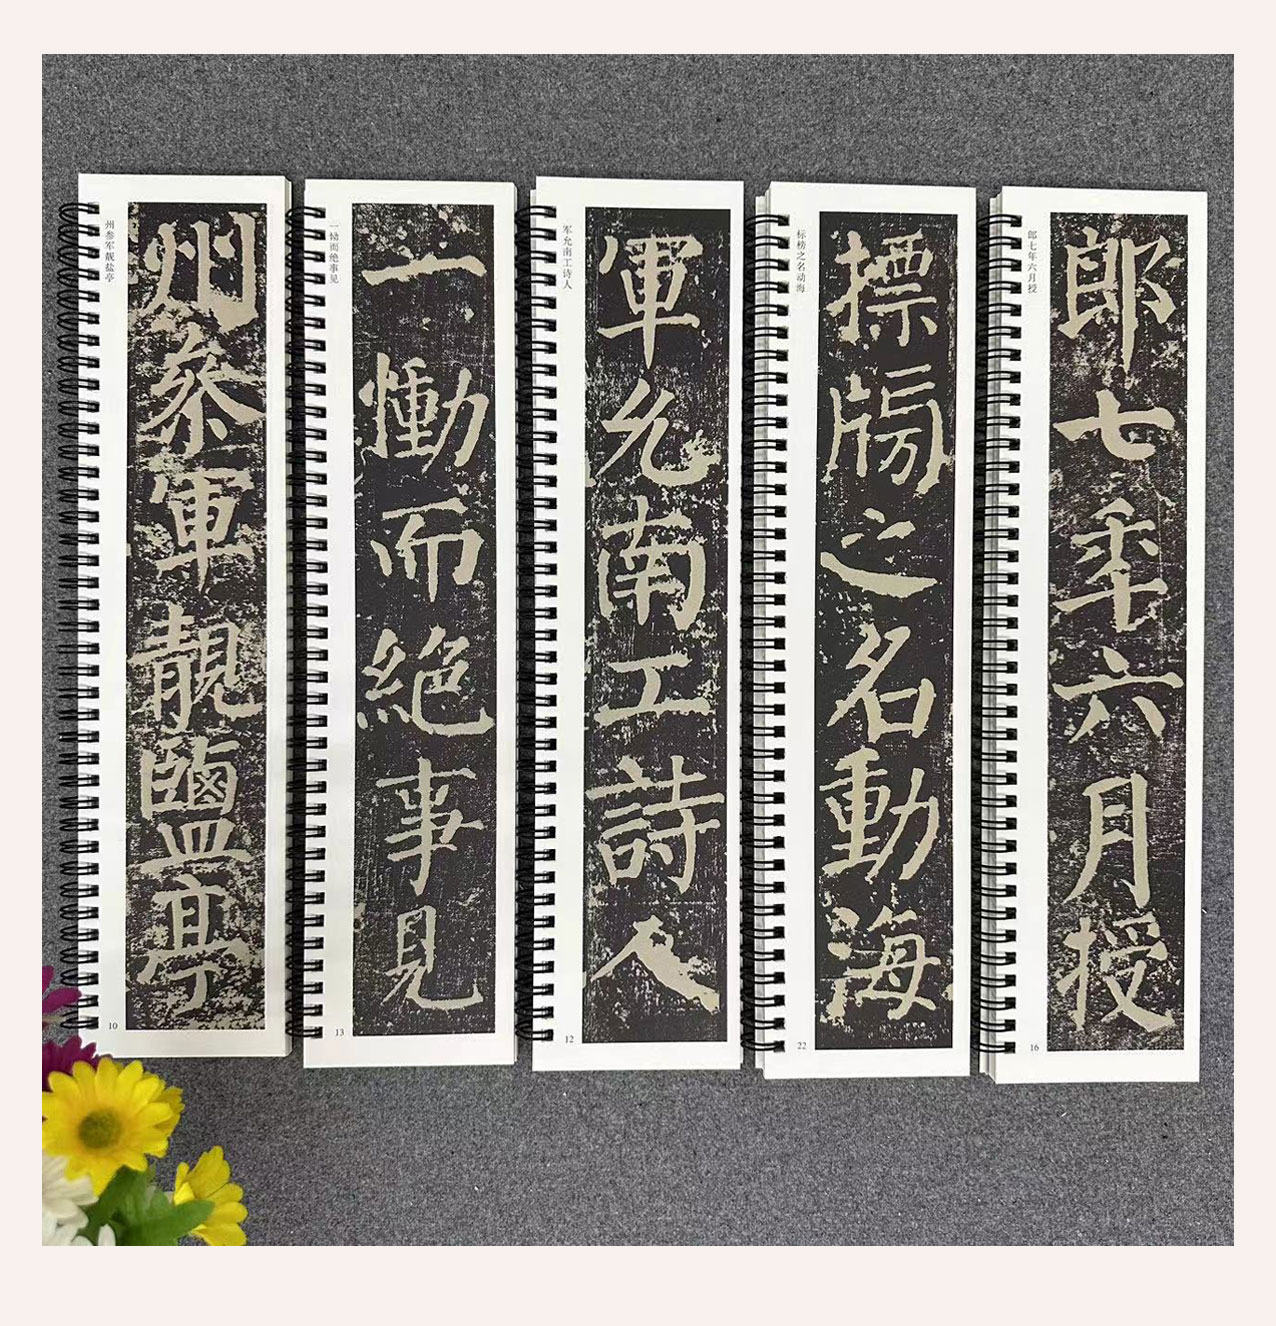 州参军靓盐亭
州參軍靚鹽亭
10
一恸而绝事见
一慟而絕事見
13
军允南工诗人
軍允南工詩人
12
标榜之名动海
摽牓之名動海
22
郎七年六月授
郎七年六月授
16